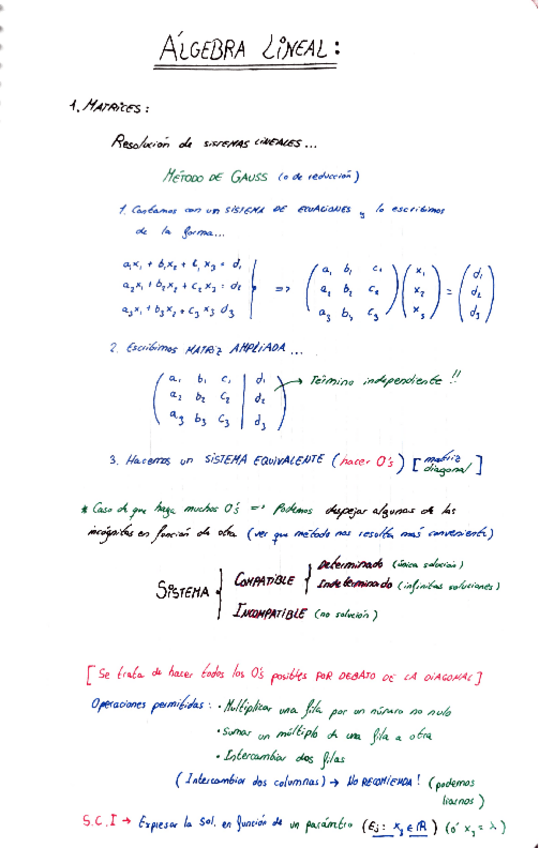 ÁLGEBRA LINEAL:
1. MATRICES:
Resolución de SISTEMAS LINEALES...
MÉTODO DE GAUSS (o de reducción)
1. Contamos con un SISTEMA DE ECUACIONES y lo escribimos
de la forma...
a₁x₁ + b₁x₂ + c₁x₃ = d₁
a₂x₁ + b₂x₂ + c₂x₃ = d₂
a₃x₁ + b₃x₂ + c₃x₃ d₃
=> (a₁ b₁ c₁) (x₁) = (d₁)
(a₂ b₂ c₂) (x₂) (d₂)
(a₃ b₃ c₃) (x₃) (d₃)
2. Escribimos MATRIZ AMPLIADA...
(a₁ b₁ c₁ | d₁) → Término independiente!!
(a₂ b₂ c₂ | d₂)
(a₃ b₃ c₃ | d₃)
3. Hacemos un SISTEMA EQUIVALENTE (hacer O's) [matriz diagonal]
* Caso de que haya muchos O's => Podemos despejar algunas de las
incógnitas en función de otra (ver que método nos resulta más conveniente)
SISTEMA { COMPATIBLE { Determinado (única solución)
Indeterminado (infinitas soluciones)
INCOMPATIBLE (no solución)
[Se trata de hacer todos los O's posibles POR DEBAJO DE LA DIAGONAL]
Operaciones permitidas: • Multiplicar una fila por un número no nulo
• Sumar un múltiplo de una fila a otra
• Intercambiar dos filas
(Intercambiar dos columnas) → NO RECOMIENDA! (podemos
liarnos)
S.C.I → Expresar la sol. en función de un parámetro (Ej: x₃ ∈ ℝ) (ó x₃ = λ)